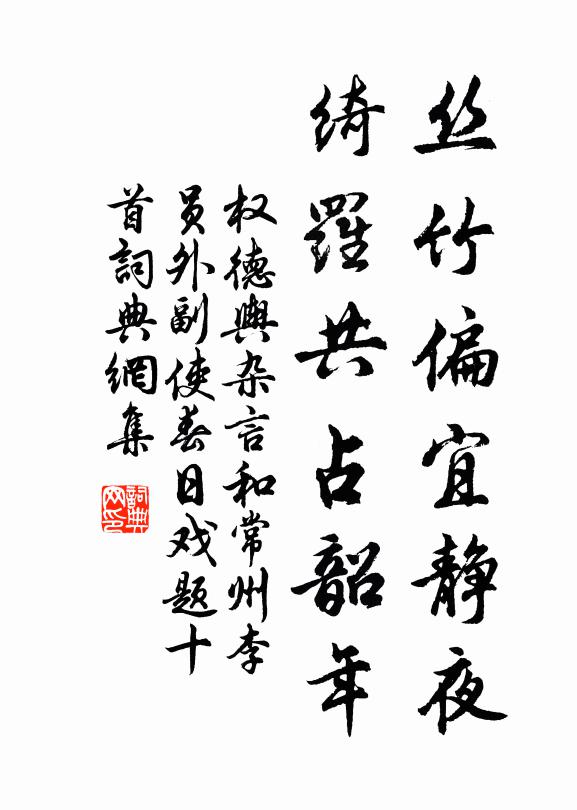 丝竹偏宜静夜
绮羅共占韶年
权德輿杂言和常州李
员外副使春日戏题十
首詞典網集
詞典网印